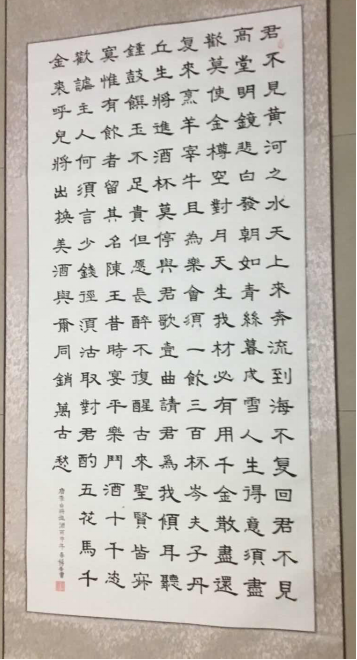 君不見黃河之水天上來奔流到海不复回君不見
高堂明鏡悲白發朝如青絲暮成雪人生得意須盡
歡莫使金樽空對月天生我材必有用千金散盡還
复來烹羊宰牛且為樂會須一飲三百杯岑夫子丹
丘生將進酒杯莫停與君歌壹曲請君為我傾耳聽
鍾鼓饌玉不足貴但愿長醉不復醒古來聖賢皆寂
寞惟有飲者留其名陳王昔時宴平樂鬥酒十千恣
歡謔主人何須言少錢徑須沽取對君酌五花馬千
金裘呼兒將出換美酒與爾同銷萬古愁
唐李白將進酒